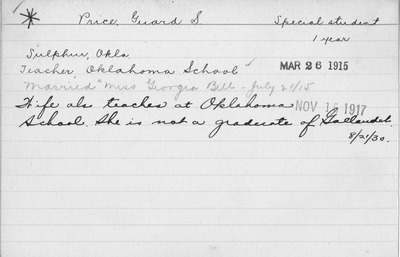 * Price, Guard S. Special student
1 year
Sulphur, Okla.
Teacher, Oklahoma School MAR 26 1915
Married "Miss Georgia Bell - July 21/15
Wife als teaches at Oklahoma NOV 15 1917
School. She is not a graduate of Gallaudet.
8/21/30.